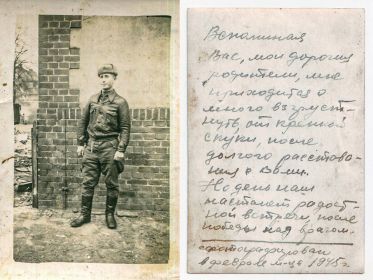 Вспоминая
Вас, мои дорогие
родители, мне
приходится
много взгруст-
нуть, от крепкой
скуки, после
долгого расстова-
ния с Вами.
Но день наш
настанет радост-
ной встречи, после
победы над врагом.
фотографирован
в феврале м-це 1945 г.